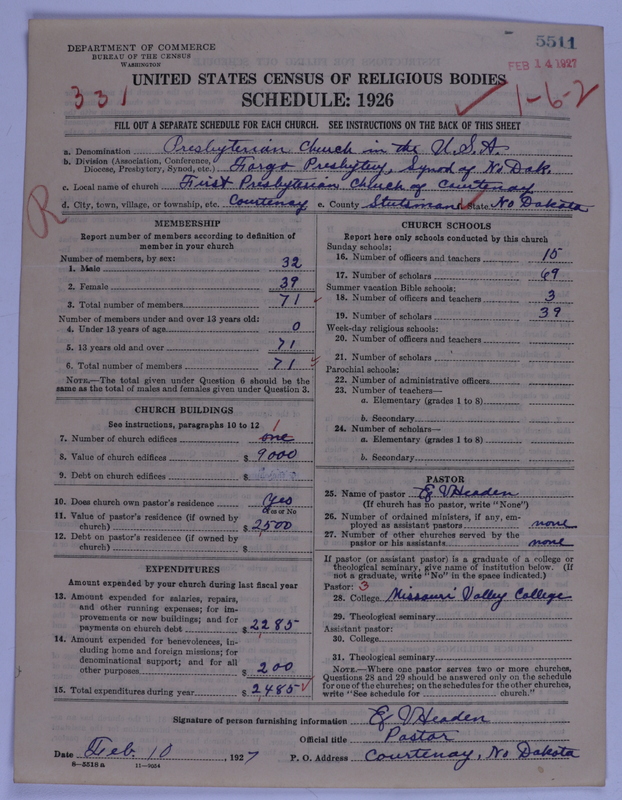 DEPARTMENT OF COMMERCE
BUREAU OF THE CENSUS
WASHINGTON
5511
FEB 14 1927
UNITED STATES CENSUS OF RELIGIOUS BODIES
SCHEDULE: 1926
331
1-6-2
FILL OUT A SEPARATE SCHEDULE FOR EACH CHURCH. SEE INSTRUCTIONS ON THE BACK OF THIS SHEET
a. Denomination Presbyterian Church in the U.S.A.
b. Division (Association, Conference, Diocese, Presbytery, Synod, etc.) Fargo Presbytery, Synod of No Dak.
c. Local name of church First Presbyterian Church of Courtenay
R
d. City, town, village, or township, etc. Courtenay e. County Stutsman State No Dakota
MEMBERSHIP
Report number of members according to definition of
member in your church
Number of members, by sex:
1. Male 32
2. Female 39
3. Total number of members 71
Number of members under and over 13 years old:
4. Under 13 years of age 0
5. 13 years old and over 71
6. Total number of members 71
NOTE.—The total given under Question 6 should be the
same as the total of males and females given under Question 3.
CHURCH BUILDINGS
See instructions, paragraphs 10 to 12
1
7. Number of church edifices one
8. Value of church edifices $ 9000
9. Debt on church edifices $
10. Does church own pastor's residence Yes
Yes or No
11. Value of pastor's residence (if owned by
church) $ 2500
12. Debt on pastor's residence (if owned by
church) $
EXPENDITURES
Amount expended by your church during last fiscal year
13. Amount expended for salaries, repairs,
and other running expenses; for im-
provements or new buildings; and for
payments on church debt $ 2285
14. Amount expended for benevolences, in-
cluding home and foreign missions; for
denominational support; and for all
other purposes $ 200
15. Total expenditures during year $ 2485
CHURCH SCHOOLS
Report here only schools conducted by this church
Sunday schools:
16. Number of officers and teachers 15
17. Number of scholars 69
Summer vacation Bible schools:
18. Number of officers and teachers 3
19. Number of scholars 39
Week-day religious schools:
20. Number of officers and teachers
21. Number of scholars
Parochial schools:
22. Number of administrative officers
23. Number of teachers—
a. Elementary (grades 1 to 8)
b. Secondary
24. Number of scholars—
a. Elementary (grades 1 to 8)
b. Secondary
PASTOR
25. Name of pastor E V Headen
(If church has no pastor, write "None")
26. Number of ordained ministers, if any, em-
ployed as assistant pastors none
27. Number of other churches served by the
pastor or his assistants none
If pastor (or assistant pastor) is a graduate of a college or
theological seminary, give name of institution below. (If
not a graduate, write "No" in the space indicated.)
Pastor: 3
28. College Missouri Valley College
29. Theological seminary
Assistant pastor:
30. College
31. Theological seminary
NOTE.—Where one pastor serves two or more churches,
Questions 28 and 29 should be answered only on the schedule
for one of the churches; on the schedules for the other churches,
write "See schedule for church."
Signature of person furnishing information E V Headen
Official title Pastor
Date Feb 10, 1927 P. O. Address Courtenay, No Dakota
8-5518a 11-9034